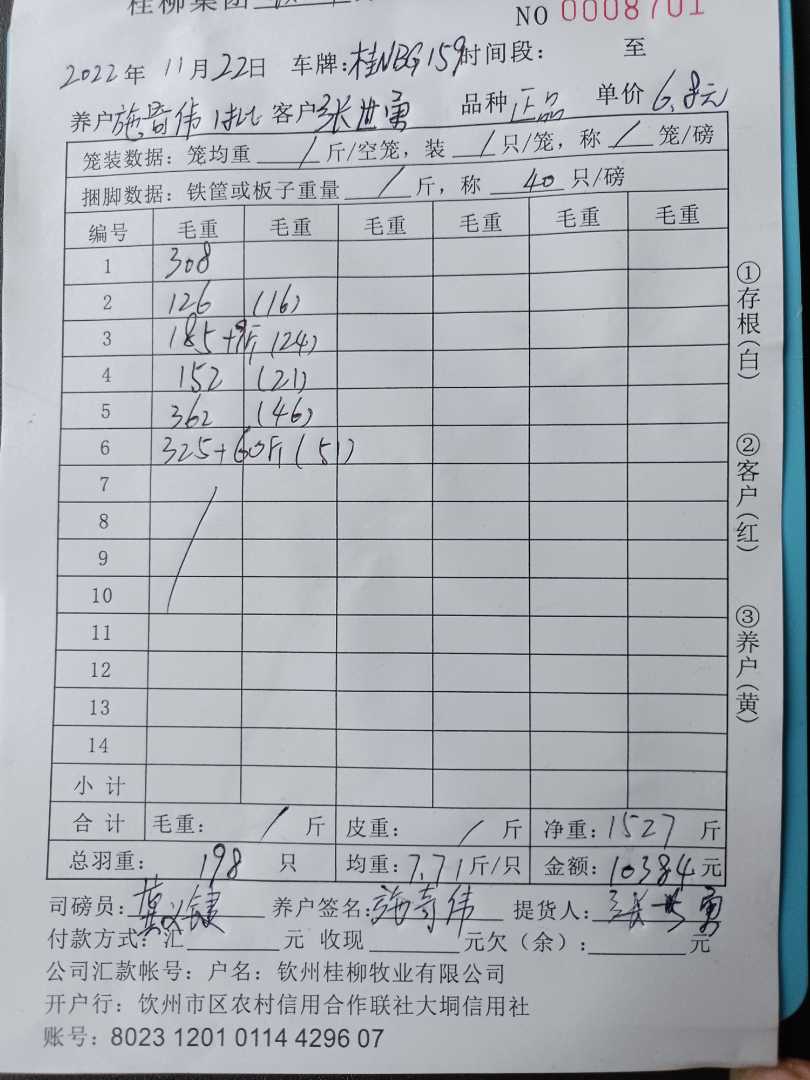 桂柳集团
NO 0008701
2022年 11月22日 车牌:桂NBG159 时间段: 至
养户施奇伟 客户张世勇 品种 正品 单价 6.8元
笼装数据: 笼均重 / 斤/空笼, 装 / 只/笼, 称 / 笼/磅
捆脚数据: 铁筐或板子重量 / 斤, 称 40 只/磅
编号 毛重 毛重 毛重 毛重 毛重 毛重
1 308
2 126 (16)
3 185+9斤 (24)
4 152 (21)
5 362 (46)
6 325+60斤 (51)
7
8
9
10
11
12
13
14
小计
合计 毛重: / 斤 皮重: / 斤 净重: 1527 斤
总羽重: 198 只 均重: 7.71斤/只 金额: 10384元
司磅员: 养户签名: 施奇伟 提货人: 张世勇
付款方式: 汇 元 收现 元欠(余): 元
公司汇款帐号: 户名: 钦州桂柳牧业有限公司
开户行: 钦州市区农村信用合作联社大垌信用社
账号: 8023 1201 0114 4296 07
①存根(白)
②客户(红)
③养户(黄)